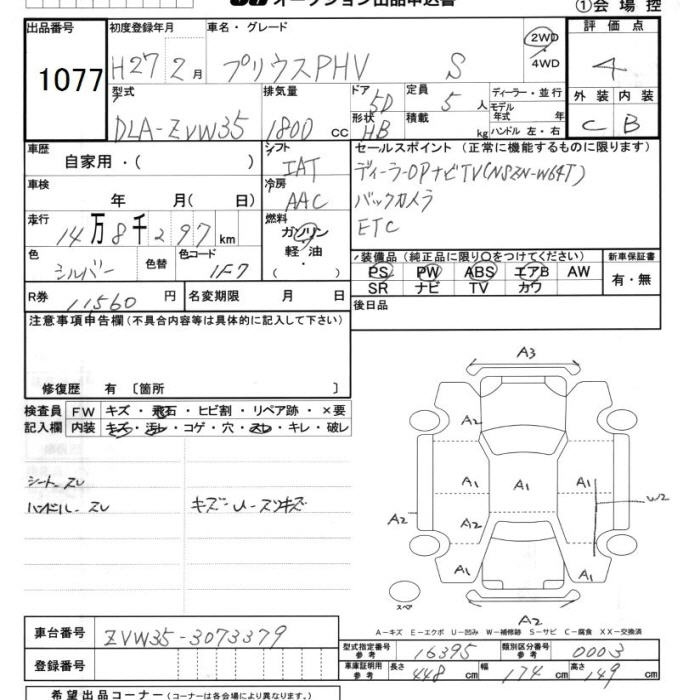 オークション出品申込書
①会 場 控
出品番号 1077
初度登録年月 H27 2月
車名・グレード プリウスPHV S
2WD
4WD
評 価 点 4
外 装 内 装
C B
型式 DLA-ZVW35
排気量 1800 cc
ドア 5D
形状 HB
定員 5 人
積載 kg
ディーラー・並 行
モデル
年式 年
ハンドル 左・右
車歴 自家用・( )
シフト IAT
冷房 AAC
セールスポイント (正常に機能するものに限ります)
ディーラーOPナビTV(NSZN-W64T)
バックカメラ
ETC
車検 年 月( 日)
走行 14万8千297km
燃料 ガソリン
・
軽・油
・
( )
色 シルバー 色替 色コード 1F7
装備品 (純正品に限り○をつけてください)
PS PW ABS エアB AW
SR ナビ TV カワ
新車保証書
有・無
R券 11560 円
名変期限 月 日
後日品
注意事項申告欄 (不具合内容等は具体的に記入して下さい)
修復歴 有 〔箇所 〕
検査員 FW キズ・飛石・ヒビ割・リペア跡・×要
記入欄 内装 キズ・汚レ・コゲ・穴・スレ・キレ・破レ
シート スレ
ハンドル スレ キズ-U-スリキズ
A3
A2
A1 A1 A1
W2
A2 A2
A1
A1 A1
スペア
A2
A-キズ E-エクボ U-凹み W-補修跡 S-サビ C-腐食 XX-交換済
車台番号 ZVW35-3073379
登録番号
型式指定番号 参考 16395
類別区分番号 参考 0003
車庫証明用 参考 長さ 448 cm 幅 174 cm 高さ 149 cm
希望出品コーナー (コーナーは各会場により異なります。)